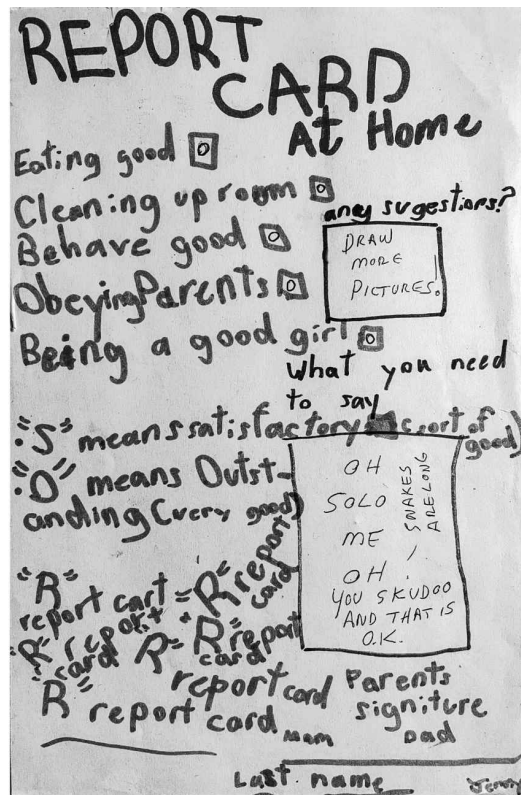 REPORT
CARD
At Home
Eating good O
Cleaning up room O
Behave good O
Obeying Parents O
Being a good girl O
aney sugestions?
DRAW
MORE
PICTURES.
What you need
to say
"S" means satisfactory (sort of
good)
"O" means Outst-
anding (very good)
OH
SOLO
ME
OH!
YOU SKUDOO
AND THAT IS
O.K.
SNAKES
ARE LONG
"R"
report cart = "R" report
card
"R" report
card
"R" = "R" report
card
report card
"R" report card
Mom
Parents
signiture
Dad
Last name